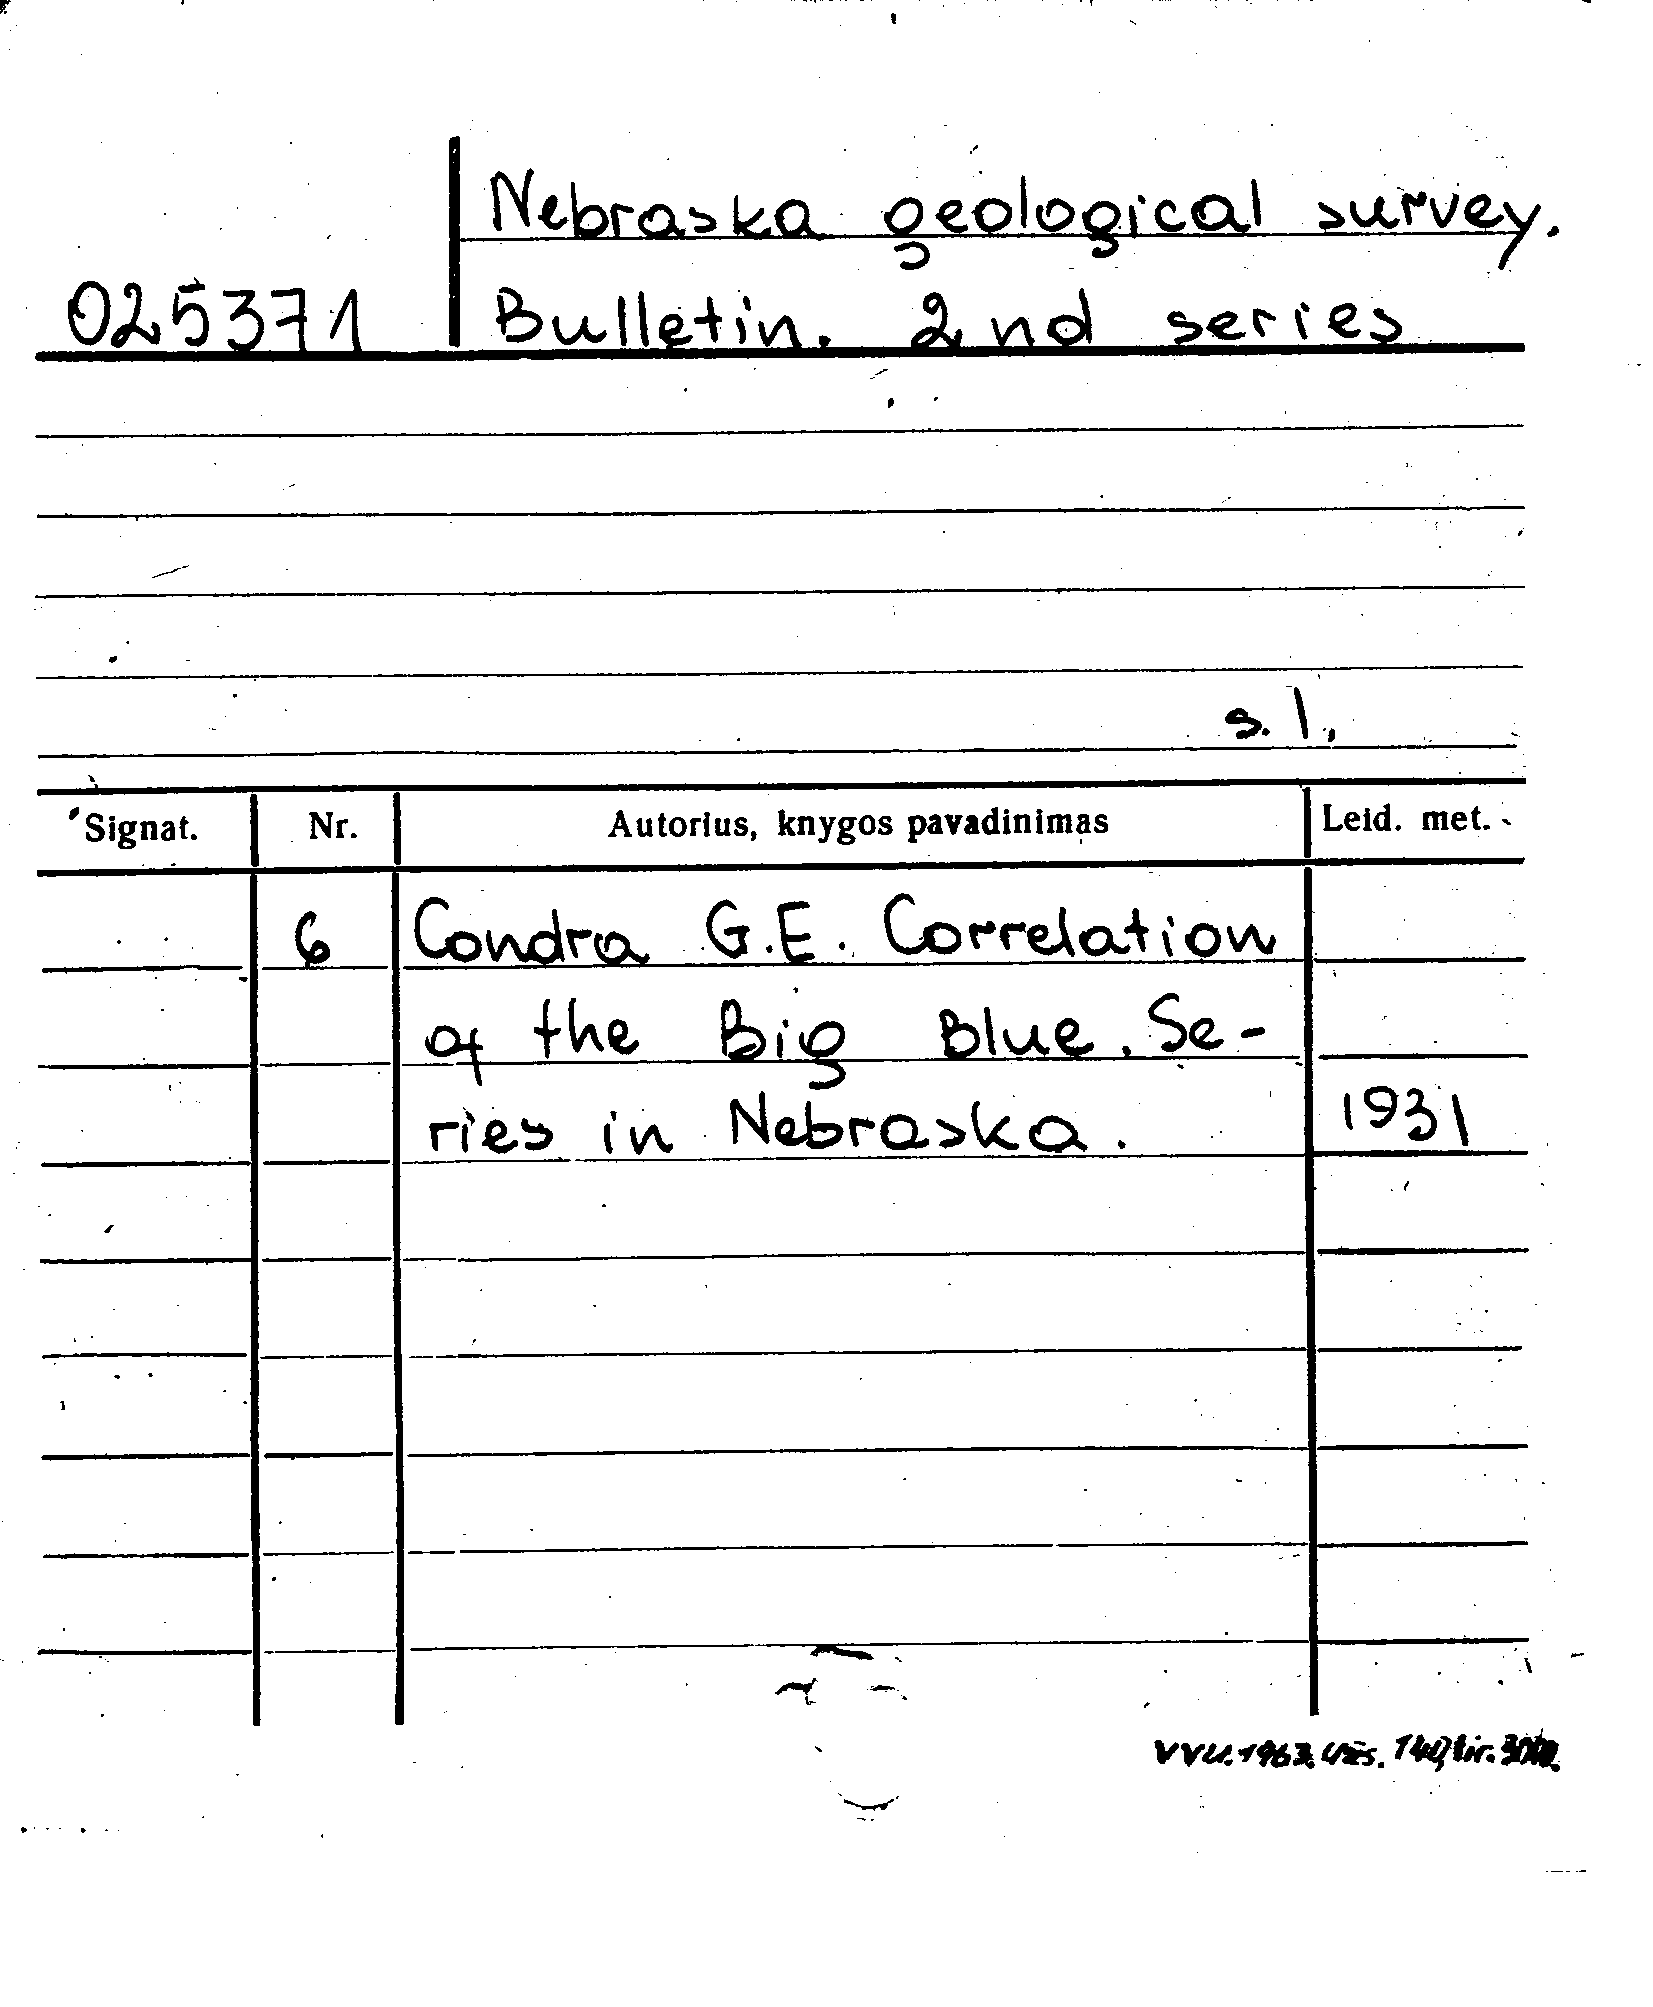 Nebraska geological survey.
025371 Bulletin. 2nd series
s. l.
Signat. Nr. Autorius, knygos pavadinimas Leid. met.
6 Condra G.E. Correlation
of the Big Blue. Se-
ries in Nebraska. 1931
VVU. 1963. Užs. 140, tir.